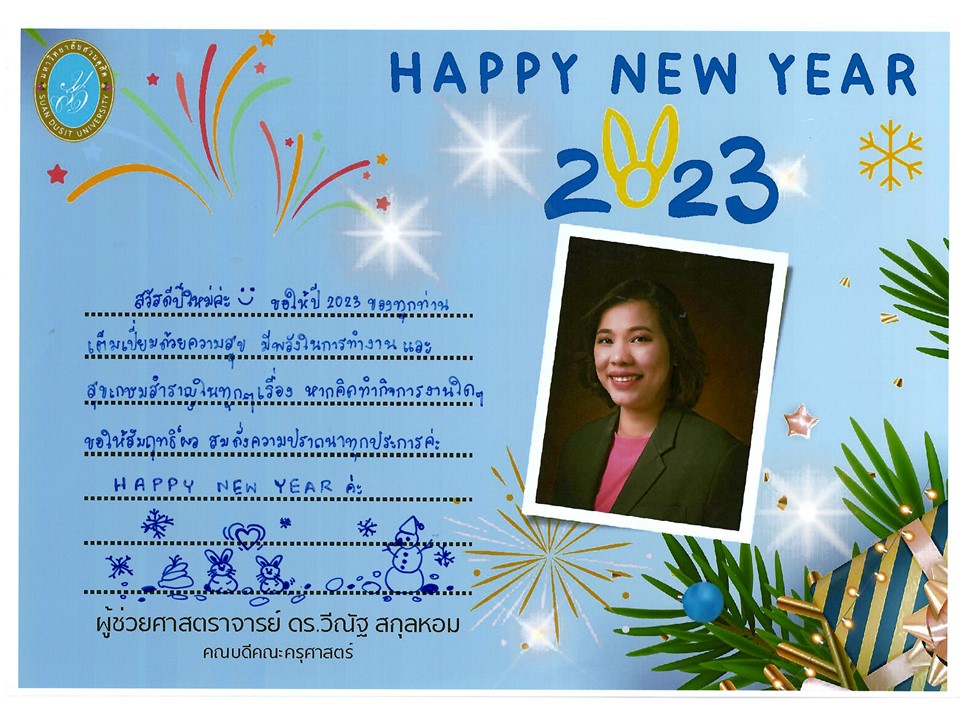 มหาวิทยาลัยสวนดุสิต
SUAN DUSIT UNIVERSITY
HAPPY NEW YEAR
2023
สวัสดีปีใหม่ค่ะ ขอให้ปี 2023 ของทุกท่าน
เต็มเปี่ยมด้วยความสุข มีพลังในการทำงาน และ
สุขเกษมสำราญในทุกๆเรื่อง หากคิดทำกิจการงานใดๆ
ขอให้สัมฤทธิ์ผล สมดั่งความปรารถนาทุกประการค่ะ
HAPPY NEW YEAR ค่ะ
ผู้ช่วยศาสตราจารย์ ดร.วีณัฐ สกุลหอม
คณบดีคณะครุศาสตร์